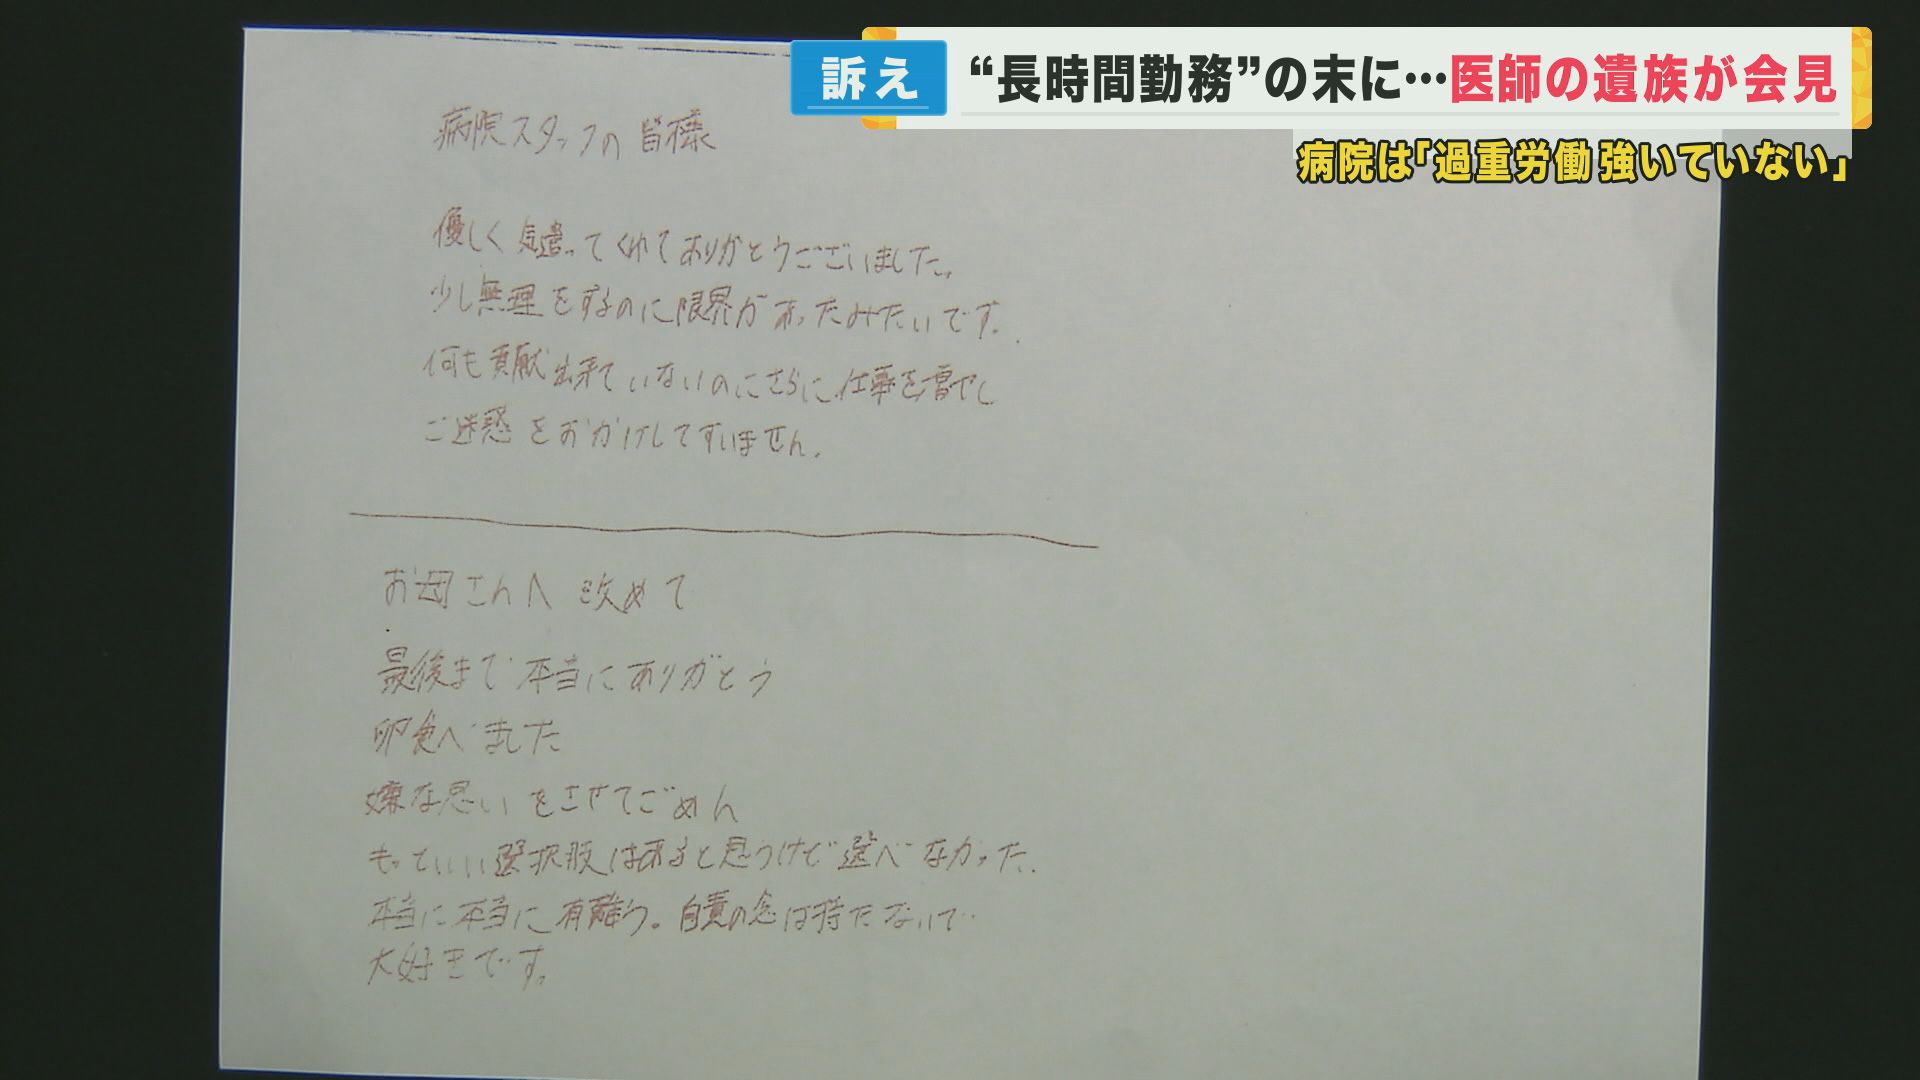 訴え
“長時間勤務”の末に…医師の遺族が会見
病院は「過重労働 強いていない」
病院スタッフの皆様
優しく気遣ってくれてありがとうございました。
少し無理をするのに限界があったみたいです。
何も貢献出来ていないのにさらに仕事を増やし
ご迷惑をおかけしてすいません。
お母さんへ 改めて
最後まで本当にありがとう
卵食べました
嫌な思いをさせてごめん
もっといい選択肢はあると思うけど選べなかった。
本当に本当に有難う。自責の念は持たないで
大好きです。